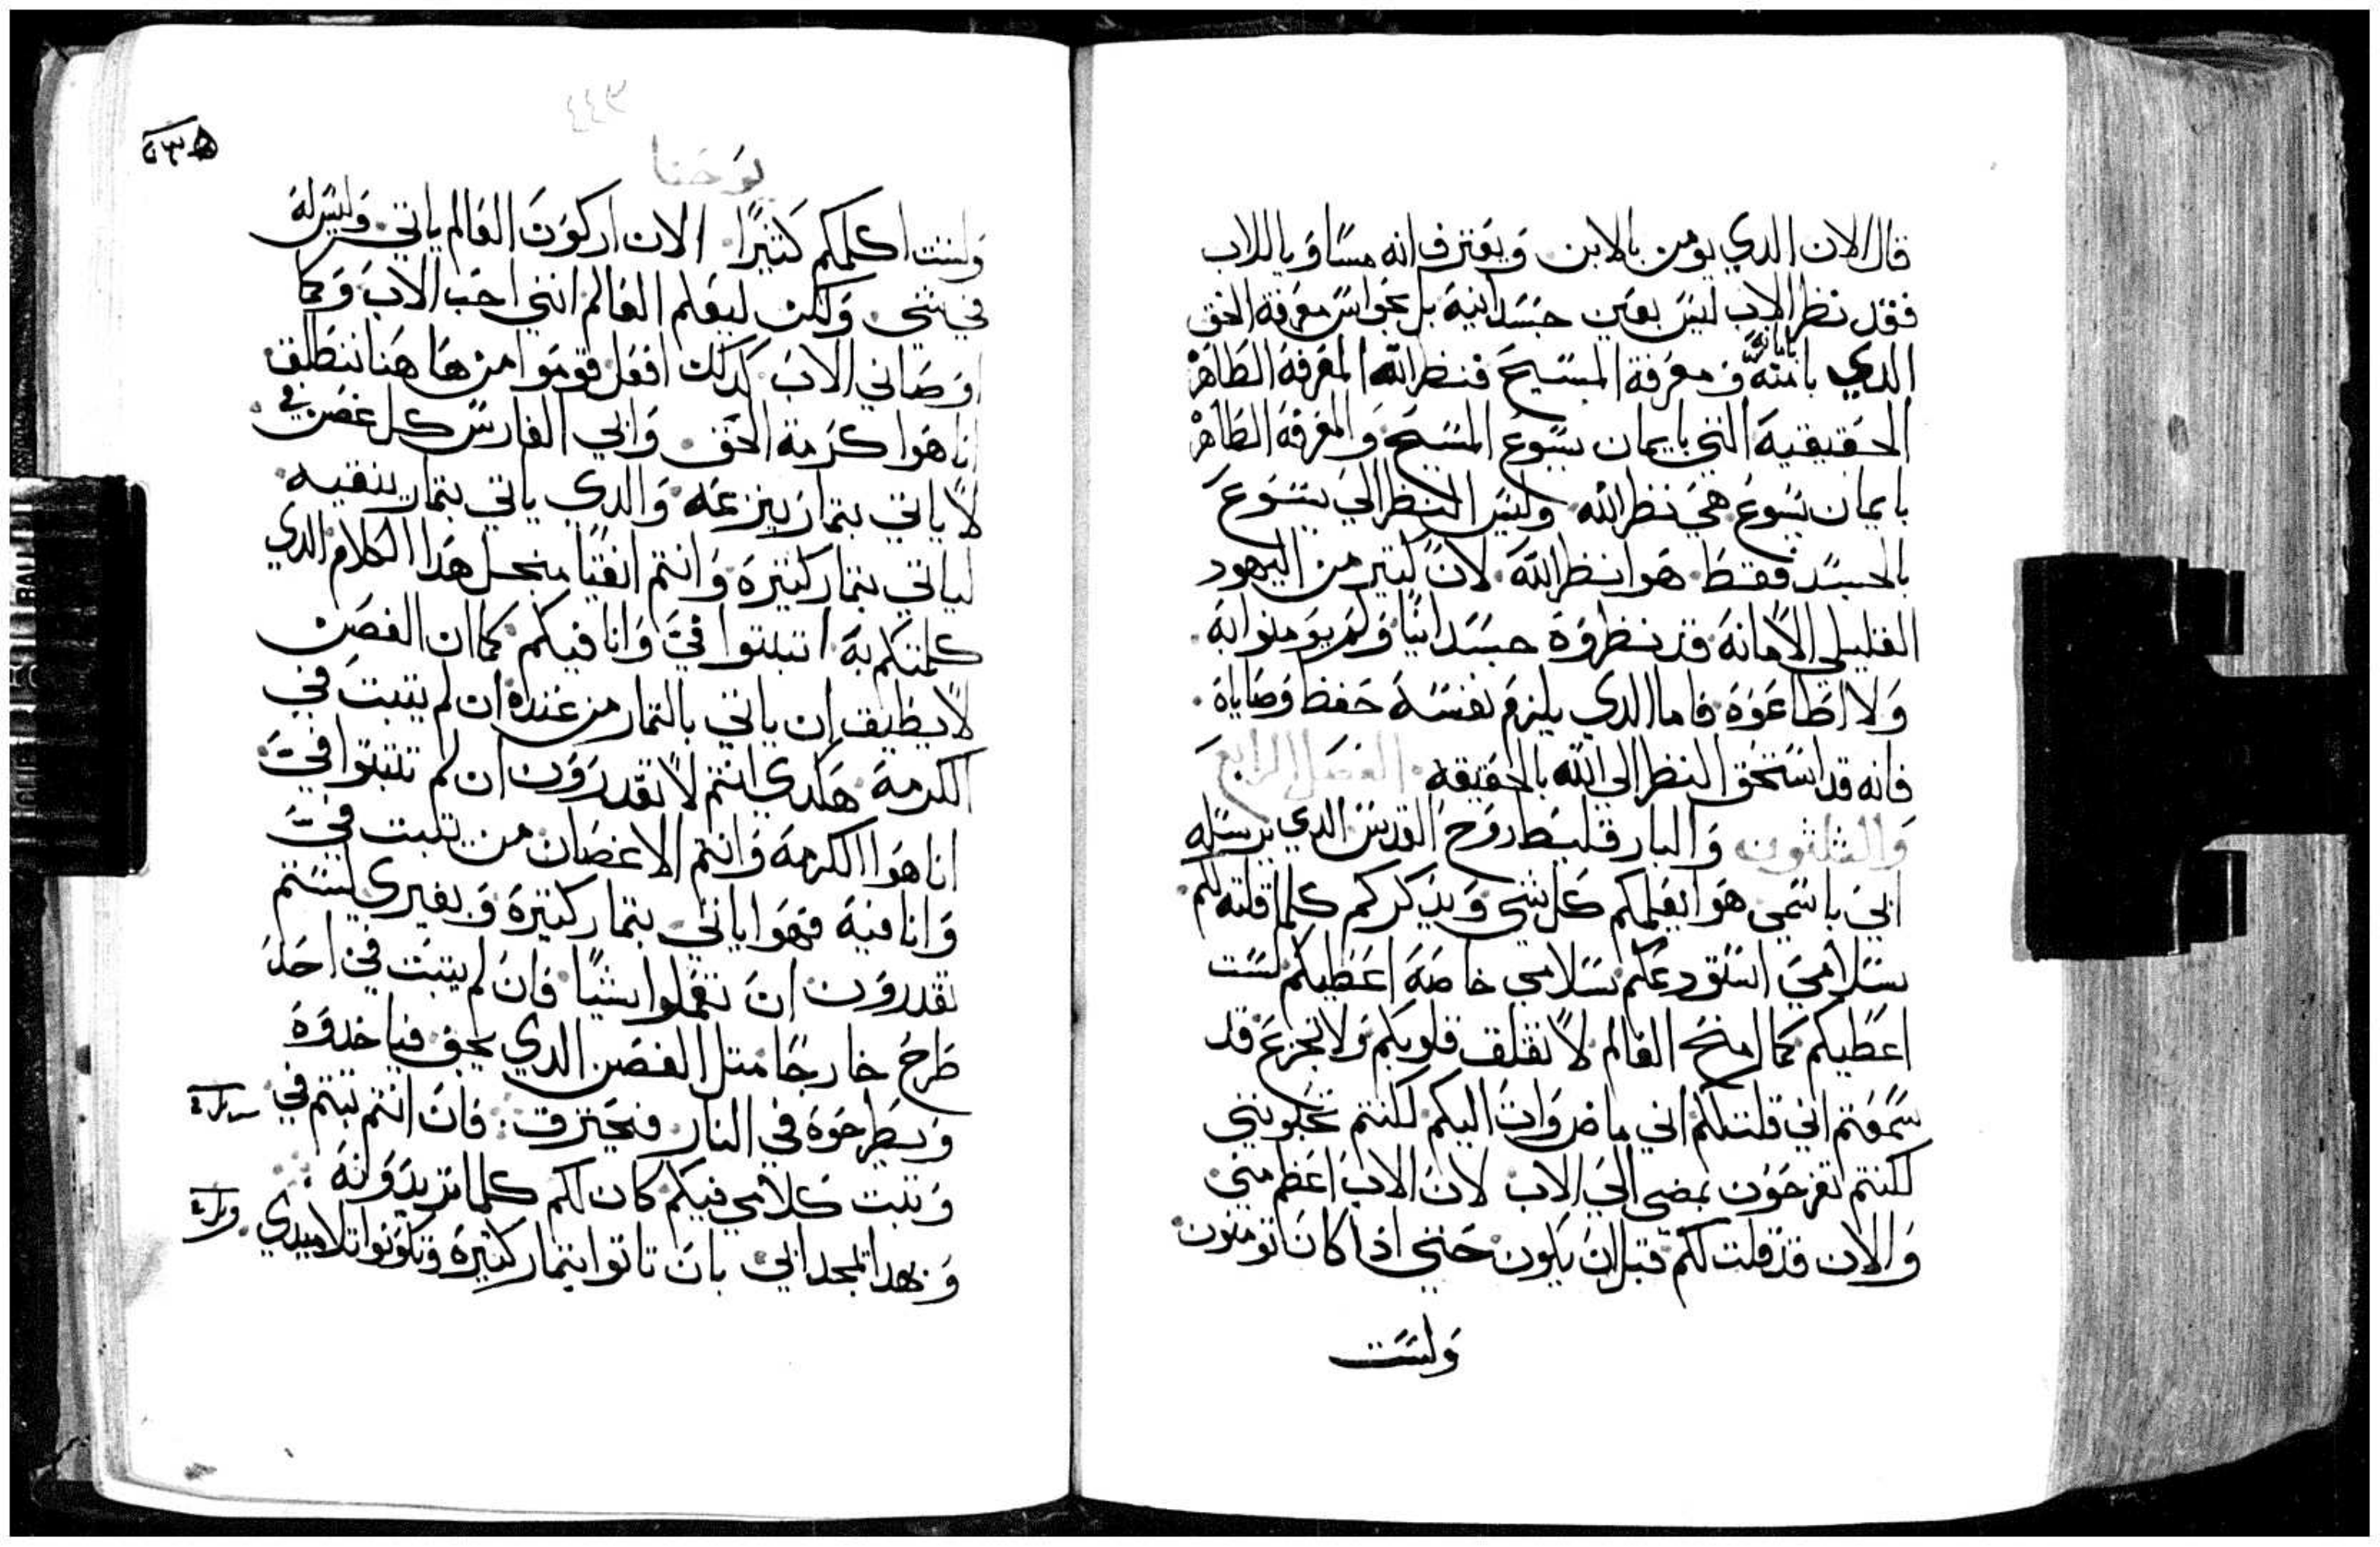 قال الان الدي يومن بالابن وبعترف انه مساو باللاب
فقد نظر الاب ليس بعين جسدانية بل بحواس معرفة الحق
الدي بامنه ف معرفة المسيح فنظر الله المعرفة الطاهر
الحقيقية التي بايمان يسوع المسيح والمعرفة الطاهر
بايمان يسوع هي نظر الله وليس النظر الي يسوع
بالجسد فقط هوا نظر الله لان كتير من اليهود
القليلي الامانة قد نظروه جسدانيا ولم يومنوا به
ولا اطاعوه فاما الدي يلزم نفسه حفظ وصاياه
فانه قد استحق النظر الي الله بالحقيقه الفصل الرابع
والثلثون والبارقليط روح القدس الدي يرسله
ابي باسمي هوا يعلمكم كل شي ويدكركم كلما قلته لكم
سلامي استودعكم سلامي خاصة اعطيكم لست
اعطيكم كما امنح العالم لا تقلق قلوبكم ولا تجزع قد
سمعتم اني قلت لكم اني ماض وات اليكم لكنتم تحبونني
لكنتم تفرحون بمضي الي الاب لان الاب اعظم مني
والان قد قلت لكم قبل ان يكون حتي اذا كان تومنون
ولست
٤٤٩
يوحنا
ولست اكلمكم كثيرا الان اركون العالم ياتي وليس له
في شي ولكن ليعلم العالم انني احب الاب وكما
اوصاني الاب كدلك افعل قوموا من هاهنا ننطلق
انا هوا كرمة الحق وابي الفارس كل غصن في
لا ياتي بتمار ينزعه والدي ياتي بتمار ينقيه
لياتي بتمار كتيرة وانتم انقيا منجل هدا الكلام الدي
كلمتكم به اتبتوا في وانا فيكم كما ان الغصن
لا يطيق ان ياتي بالتمار من عنده ان لم يتبت في
الكرمة هكدي انتم لا تقدرون ان لم تتبتوا في
انا هوا الكرمة وانتم الاغصان من يتبت في
وانا فيه فهوا ياتي بتمار كتيرة وبغيري لستم
تقدرون ان تعملوا شيا فان لم يتبت في احد
طرح خارجا متل الغصن الدي يجف فياخدوه
ويطرحوه في النار فيحترق فان انتم تبتم في
وتبت كلامي فيكم كان لكم كلما تريدونه
وبهدا تمجد ابي بان تاتوا بتمار كتيرة وتكونوا تلاميدي